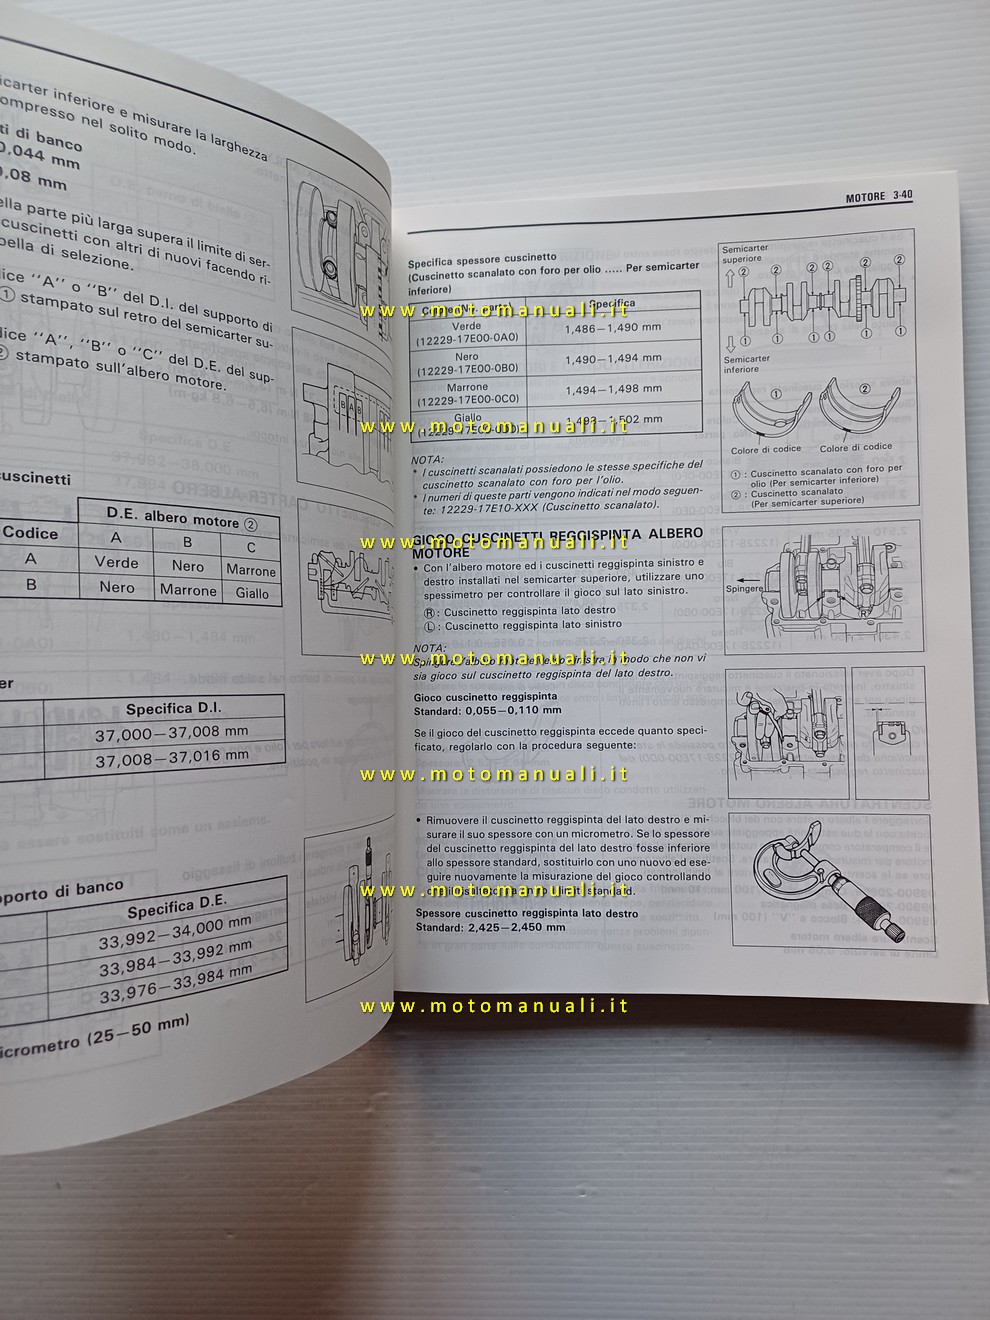 icarter inferiore e misurare la larghezza
ompresso nel solito modo.
ti di banco
0,044 mm
0,08 mm
ella parte più larga supera il limite di ser-
cuscinetti con altri di nuovi facendo ri-
bella di selezione.
dice ''A'' o ''B'' del D.I. del supporto di
① stampato sul retro del semicarter su-
dice ''A'', ''B'' o ''C'' del D.E. del sup-
② stampato sull'albero motore.
cuscinetti
D.E. albero motore ②
Codice A B C
A Verde Nero Marrone
B Nero Marrone Giallo
er
Specifica D.I.
37,000—37,008 mm
37,008—37,016 mm
pporto di banco
Specifica D.E.
33,992—34,000 mm
33,984—33,992 mm
33,976—33,984 mm
icrometro (25—50 mm)
B A B
MOTORE 3-40
Specifica spessore cuscinetto
(Cuscinetto scanalato con foro per olio ..... Per semicarter
inferiore)
Specifica
Verde
(12229-17E00-0A0) 1,486—1,490 mm
Nero
(12229-17E00-0B0) 1,490—1,494 mm
Marrone
(12229-17E00-0C0) 1,494—1,498 mm
Giallo
NOTA:
* I cuscinetti scanalati possiedono le stesse specifiche del
cuscinetto scanalato con foro per l'olio.
* I numeri di queste parti vengono indicati nel modo seguen-
te: 12229-17E10-XXX (Cuscinetto scanalato).
GIOCO CUSCINETTI REGGISPINTA ALBERO
MOTORE
• Con l'albero motore ed i cuscinetti reggispinta sinistro e
destro installati nel semicarter superiore, utilizzare uno
spessimetro per controllare il gioco sul lato sinistro.
Ⓡ: Cuscinetto reggispinta lato destro
Ⓛ: Cuscinetto reggispinta lato sinistro
NOTA:
Spingere l'albero motore verso sinistra in modo che non vi
sia gioco sul cuscinetto reggispinta del lato destro.
Gioco cuscinetto reggispinta
Standard: 0,055—0,110 mm
Se il gioco del cuscinetto reggispinta eccede quanto speci-
ficato, regolarlo con la procedura seguente:
• Rimuovere il cuscinetto reggispinta del lato destro e mi-
surare il suo spessore con un micrometro. Se lo spessore
del cuscinetto reggispinta del lato destro fosse inferiore
allo spessore standard, sostituirlo con uno nuovo ed ese-
guire nuovamente la misurazione del gioco controllando
Spessore cuscinetto reggispinta lato destro
Standard: 2,425—2,450 mm
Semicarter
superiore
② ② ② ② ② ②
① ① ① ① ①
Semicarter
inferiore
① ②
Colore di codice Colore di codice
① : Cuscinetto scanalato con foro per
olio (Per semicarter inferiore)
② : Cuscinetto scanalato
(Per semicarter superiore)
Spingere
www.motomanuali.it
www.motomanuali.it
www.motomanuali.it
www.motomanuali.it
www.motomanuali.it
www.motomanuali.it
www.motomanuali.it